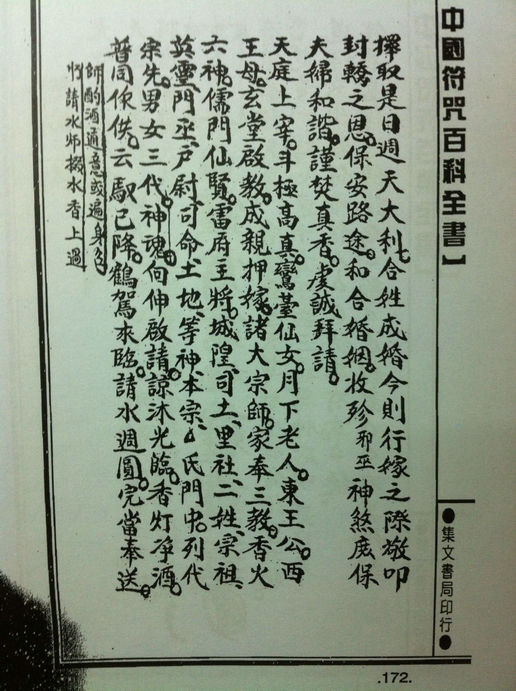 中國符咒百科全書】
●集文書局印行●
.172.
擇取是日週天大利。合姓成婚今則行嫁之際敬叩
封轎之恩。保安路途。和合婚姻。收殄邪巫神煞庶保
夫婦和諧。謹焚真香。虔誠拜請。
天庭上宰。斗極高真。鸞臺仙女。月下老人。東王公。西
王母。玄堂啟教。成親押嫁。諸大宗師。家奉三教。香火
六神。儒門仙賢。雷府主將。城隍。司土。里社。二姓宗祖。
英靈。門丞。戶尉。司命土地。等神。本宗ム氏門中。列代
宗先。男女三代。神魂。向伸啟請。諒沐光臨。香灯淨酒。
普同依供。云馭已降。鶴駕來臨。請水週圓。完當奉送。
師酌酒通意或遍身多
請水師撥水香上過